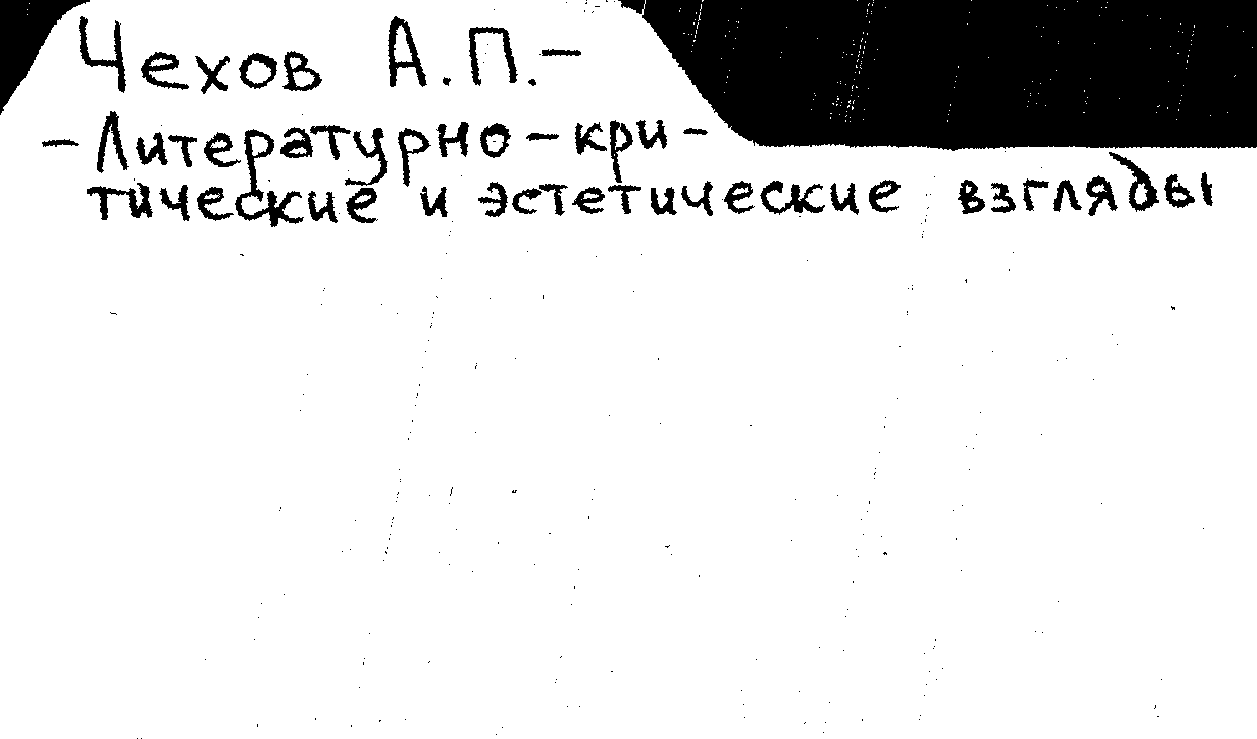 Чехов А.П.—
—Литературно-кри-
тические и эстетические взгляды